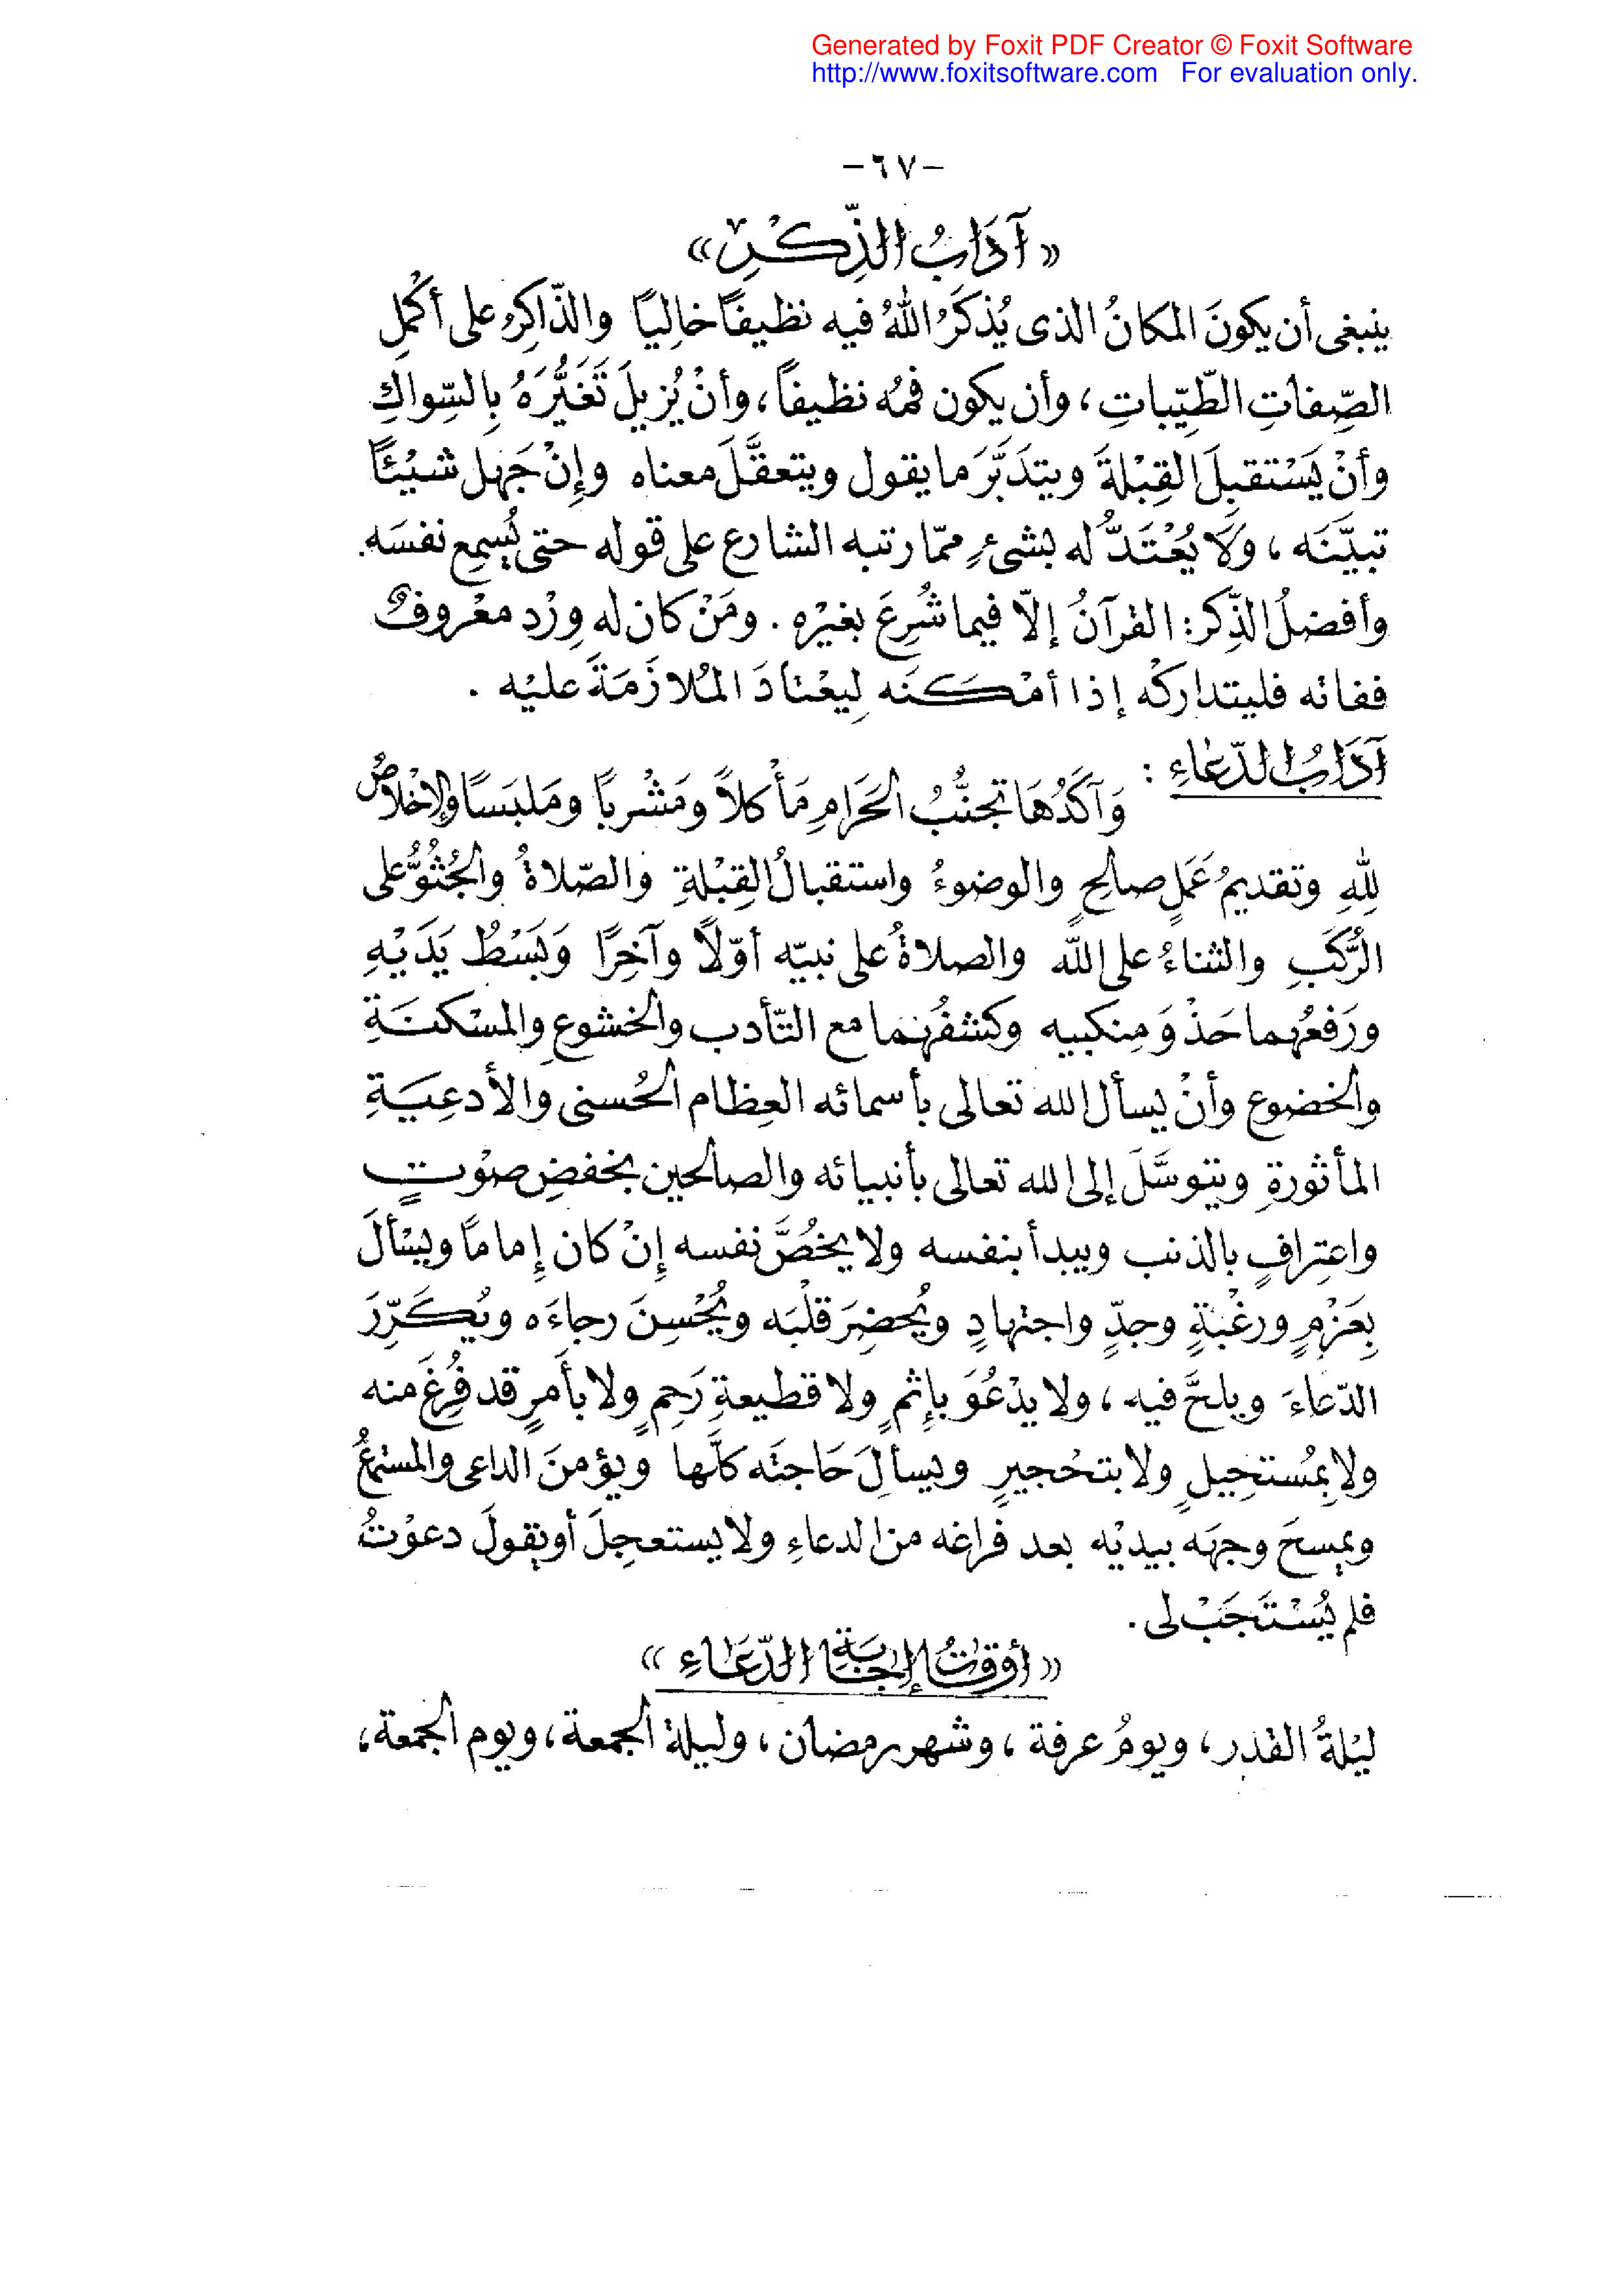 Generated by Foxit PDF Creator © Foxit Software
http://www.foxitsoftware.com For evaluation only.
-٦٧-
«آدَابُ الذِّكْرِ»
ينبغى أن يكونَ المكانُ الذى يُذكَرُ اللهُ فيه نظيفًا خالِيًا والذّاكِرُ على أكْمَلِ
الصِّفاتِ الطَّيِّباتِ، وأن يكون فمُه نظيفاً، وأنْ يُزيلَ تَغَيُّرَهُ بِالسِّواكِ
وأنْ يَسْتقبِلَ القِبْلةَ ويتدَبَّرَ ما يقول ويتعقَّلَ معناه وإِنْ جَهِل شَيْئًا
تبيَّنَه، وَلَا يُعْتَدُّ له بشىءٍ ممّا رتبه الشارع على قوله حتى يُسمِع نفسَه.
وأفضلُ الذِّكر: القرآنُ إلّا فيما شُرِعَ بغيْرِه. ومَنْ كان له وِرْد معْروفٌ
ففاته فليتداركْه إذا أمْكَنَه لِيعْتادَ المُلازَمَةَ عليْه.
آدَابُ الدّعَاءِ:
وَآكَدُهَا تجنُّبُ الحَرَامِ مَأْكلاً ومَشْرباً ومَلبَسًا والإِخْلاصُ
لِلهِ وتقديمُ عَمَلٍ صالحٍ والوضوءُ واستقبالُ القِبْلةِ والصّلاةُ والجُثُوُّ على
الرُّكَبِ والثناءُ على الله والصلاةُ على نبيّه أوّلًا وآخِرًا وَبَسْطُ يَدَيْهِ
ورَفعُهما حَذْوَ مِنكبيه وكشفُهما مع التّأدب والخشوعِ والمسْكنَةِ
والخضوع وأنْ يسأل الله تعالى بأسمائه العِظام الحُسنى والأدعِيَةِ
المأثورةِ ويتوسَّلَ إلى الله تعالى بأنبيائه والصالحين بخفضِ صوْتٍ
واعتِرافٍ بالذنب ويبدأ بنفسه ولا يخُصَّ نفسه إِنْ كان إِماماً ويسْألَ
بِعَزْمٍ ورغْبةٍ وجدٍّ واجتهادٍ ويُحضِرَ قلْبَه ويُحْسِنَ رجاءَه ويُكَرِّرَ
الدّعاءَ ويلحَّ فيه، ولا يدْعُوَ بإِثمٍ ولا قطيعةِ رَحِمٍ ولا بأَمرٍ قد فُرِغَ منه
ولا بِمُستحِيلٍ ولا بتحْجيرٍ ويسألَ حَاجتَه كلَّها ويؤمنَ الداعى والمستمعُ
ويمسحَ وجهَه بيديْه بعد فراغه من الدعاءِ ولا يستعجِلَ أو يقولَ دعوْتُ
فلم يُسْتَجَبْ لى.
«أوقاتُ إجَابَةِ الدّعَاءِ»
ليْلةُ القدر، ويومُ عرفة، وشهر رمضان، وليلة الجمعة، ويوم الجمعة،